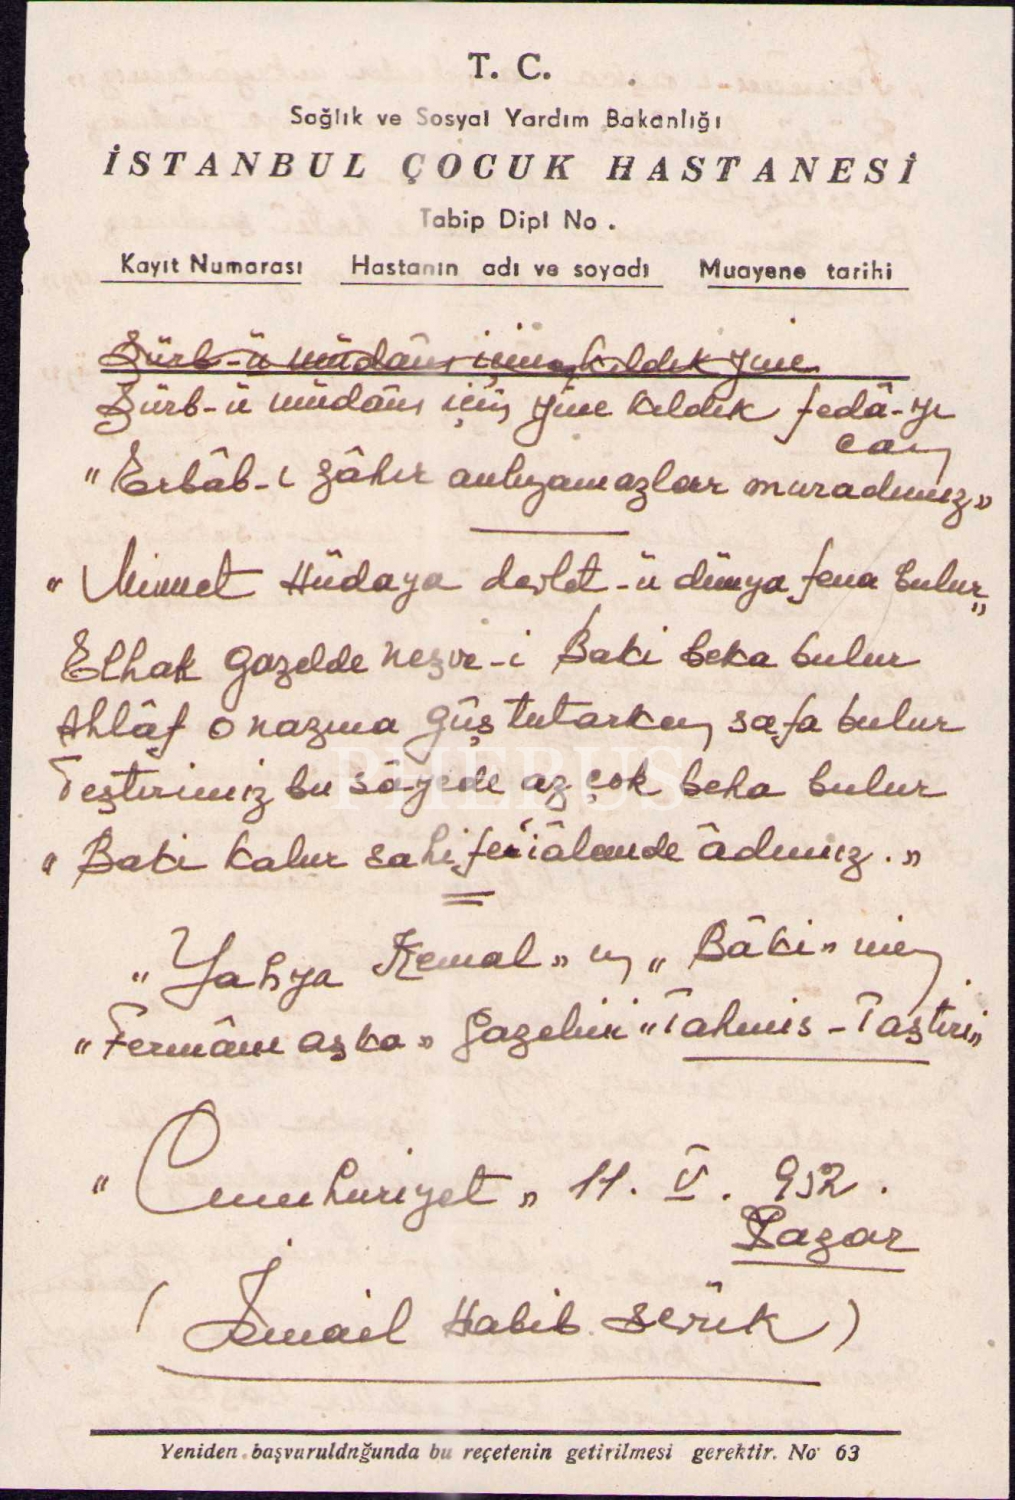 T. C.
Sağlık ve Sosyal Yardım Bakanlığı
İSTANBUL ÇOCUK HASTANESİ
Tabip Dipl No .
Kayıt Numarası Hastanın adı ve soyadı Muayene tarihi
Şürb-ü müdâm için kıldık yine
Şürb-ü müdâm için yine kıldık fedâ-yı
can
"Erbâb-ı zâhir anlıyamazlar muradımız"
"Minnet Hüdaya devlet-ü dünya fena bulur"
Elhak gazelde neşve-i Baki beka bulur
Ahlâf o nazma gûş tutarken safa bulur
Teştirimiz bu sâyede az çok beha bulur
"Baki kalur sahife-i âlemde âdımız."
"Yahya Kemal" in "Bâki" nin
"Fermâm aşka" Gazelinin "Tahmis - Taştiri"
"Cumhuriyet" 11. V. 952.
Pazar
(İsmail Habib Sevük)
Yeniden başvuruldnğunda bu reçetenin getirilmesi gerektir. No 63
PHEBUS